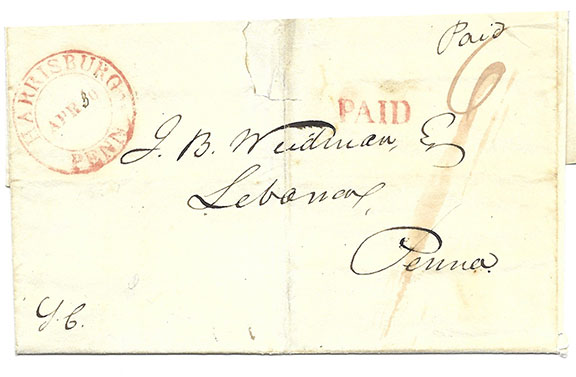 Paid
6
HARRISBURG
APR 30
PENN
PAID
J. B. Weidman, Esq
Lebanon,
Penna.